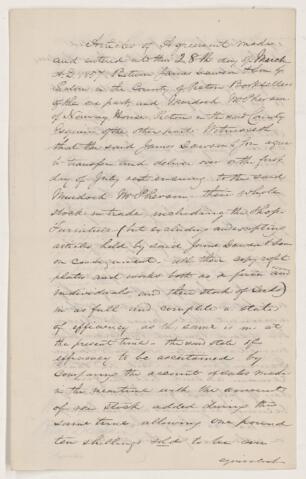 Articles of Agreement made
and entered into this 28th day of March
A.D. 1857 Between James Dawson & Son of
Pictou in the County of Pictou Booksellers
of the one part, and Murdoch McPherson
of Norway House Pictou in the said County
Esquire of the other part. Witnesseth
that the said James Dawson & Son agree
to transfer and deliver over on the first
day of July next ensuing to the said
Murdoch McPherson their whole
stock in trade, including the Shop
Furniture (but excluding and excepting
articles held by said James Dawson & Son
on consignment. All their copy right
plates and works both as a firm and
individuals, and their stock of Seeds)
in as full and complete a state
of efficiency as the same is in at
the present time - the said state of
efficiency to be ascertained by
comparing the account of sales made
in the meantime with the amount
of new stock added during the
same time, allowing one pound
ten shillings sold to be
equivalent